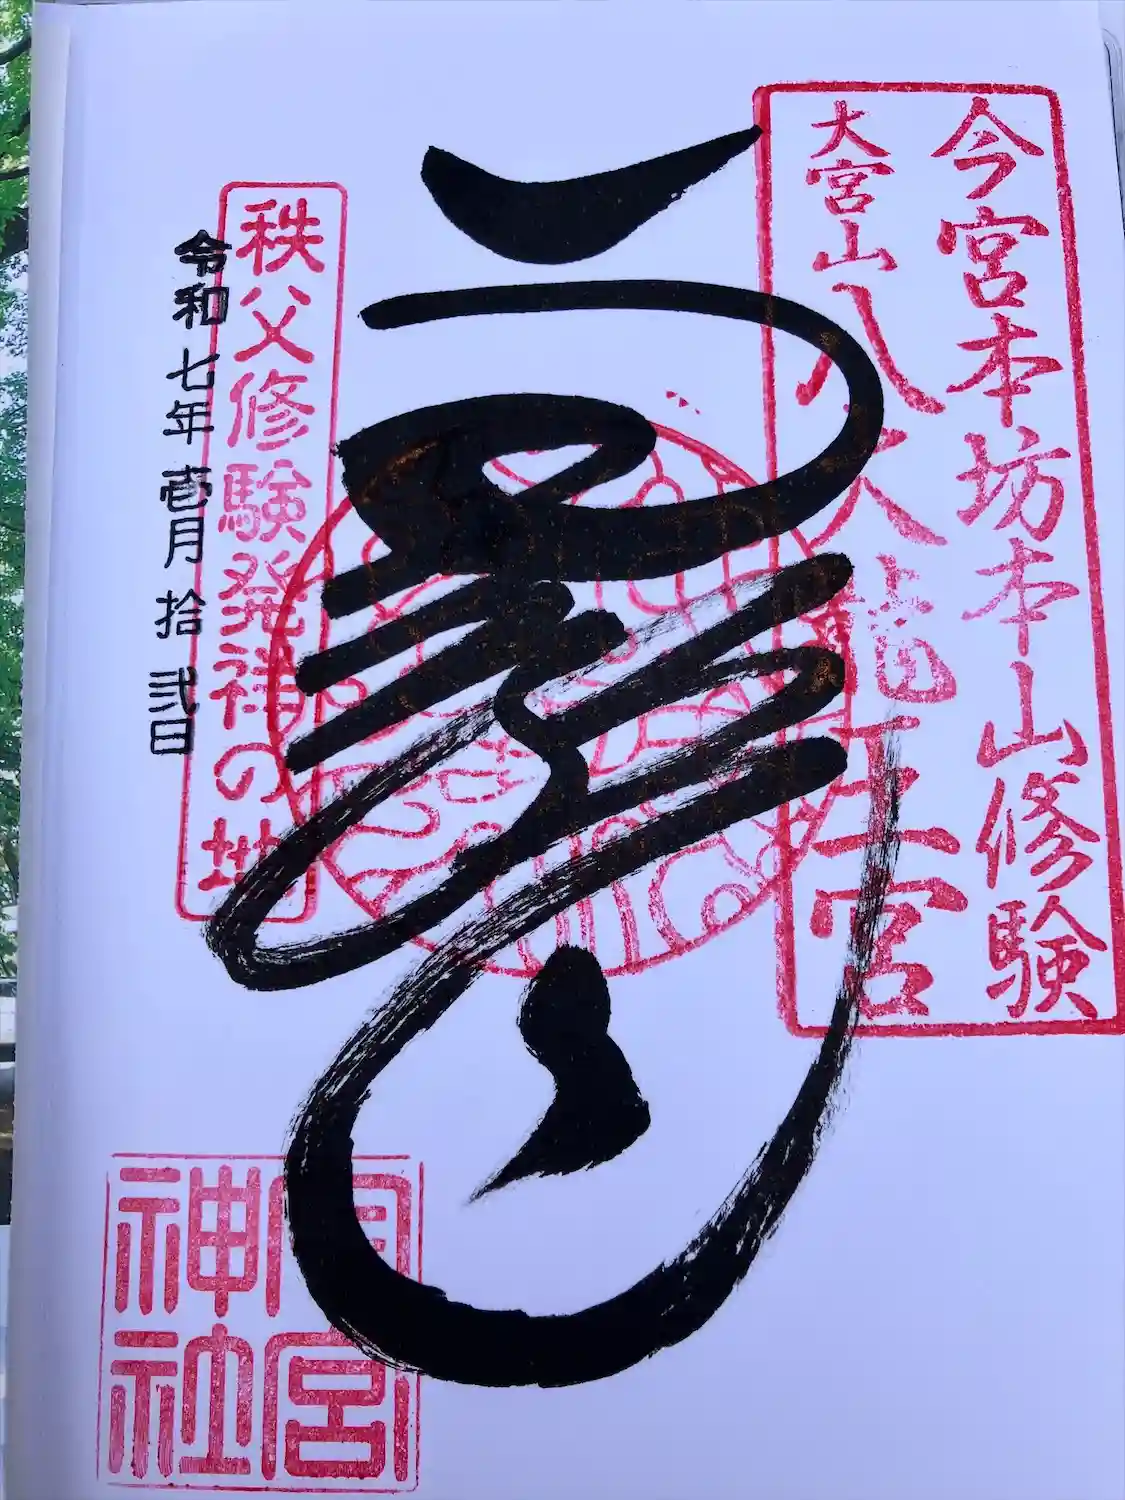 今宮本坊本山修験
大宮山八大龍王宮
秩父修験発祥の地
令和七年壱月拾弐日
今宮
神社